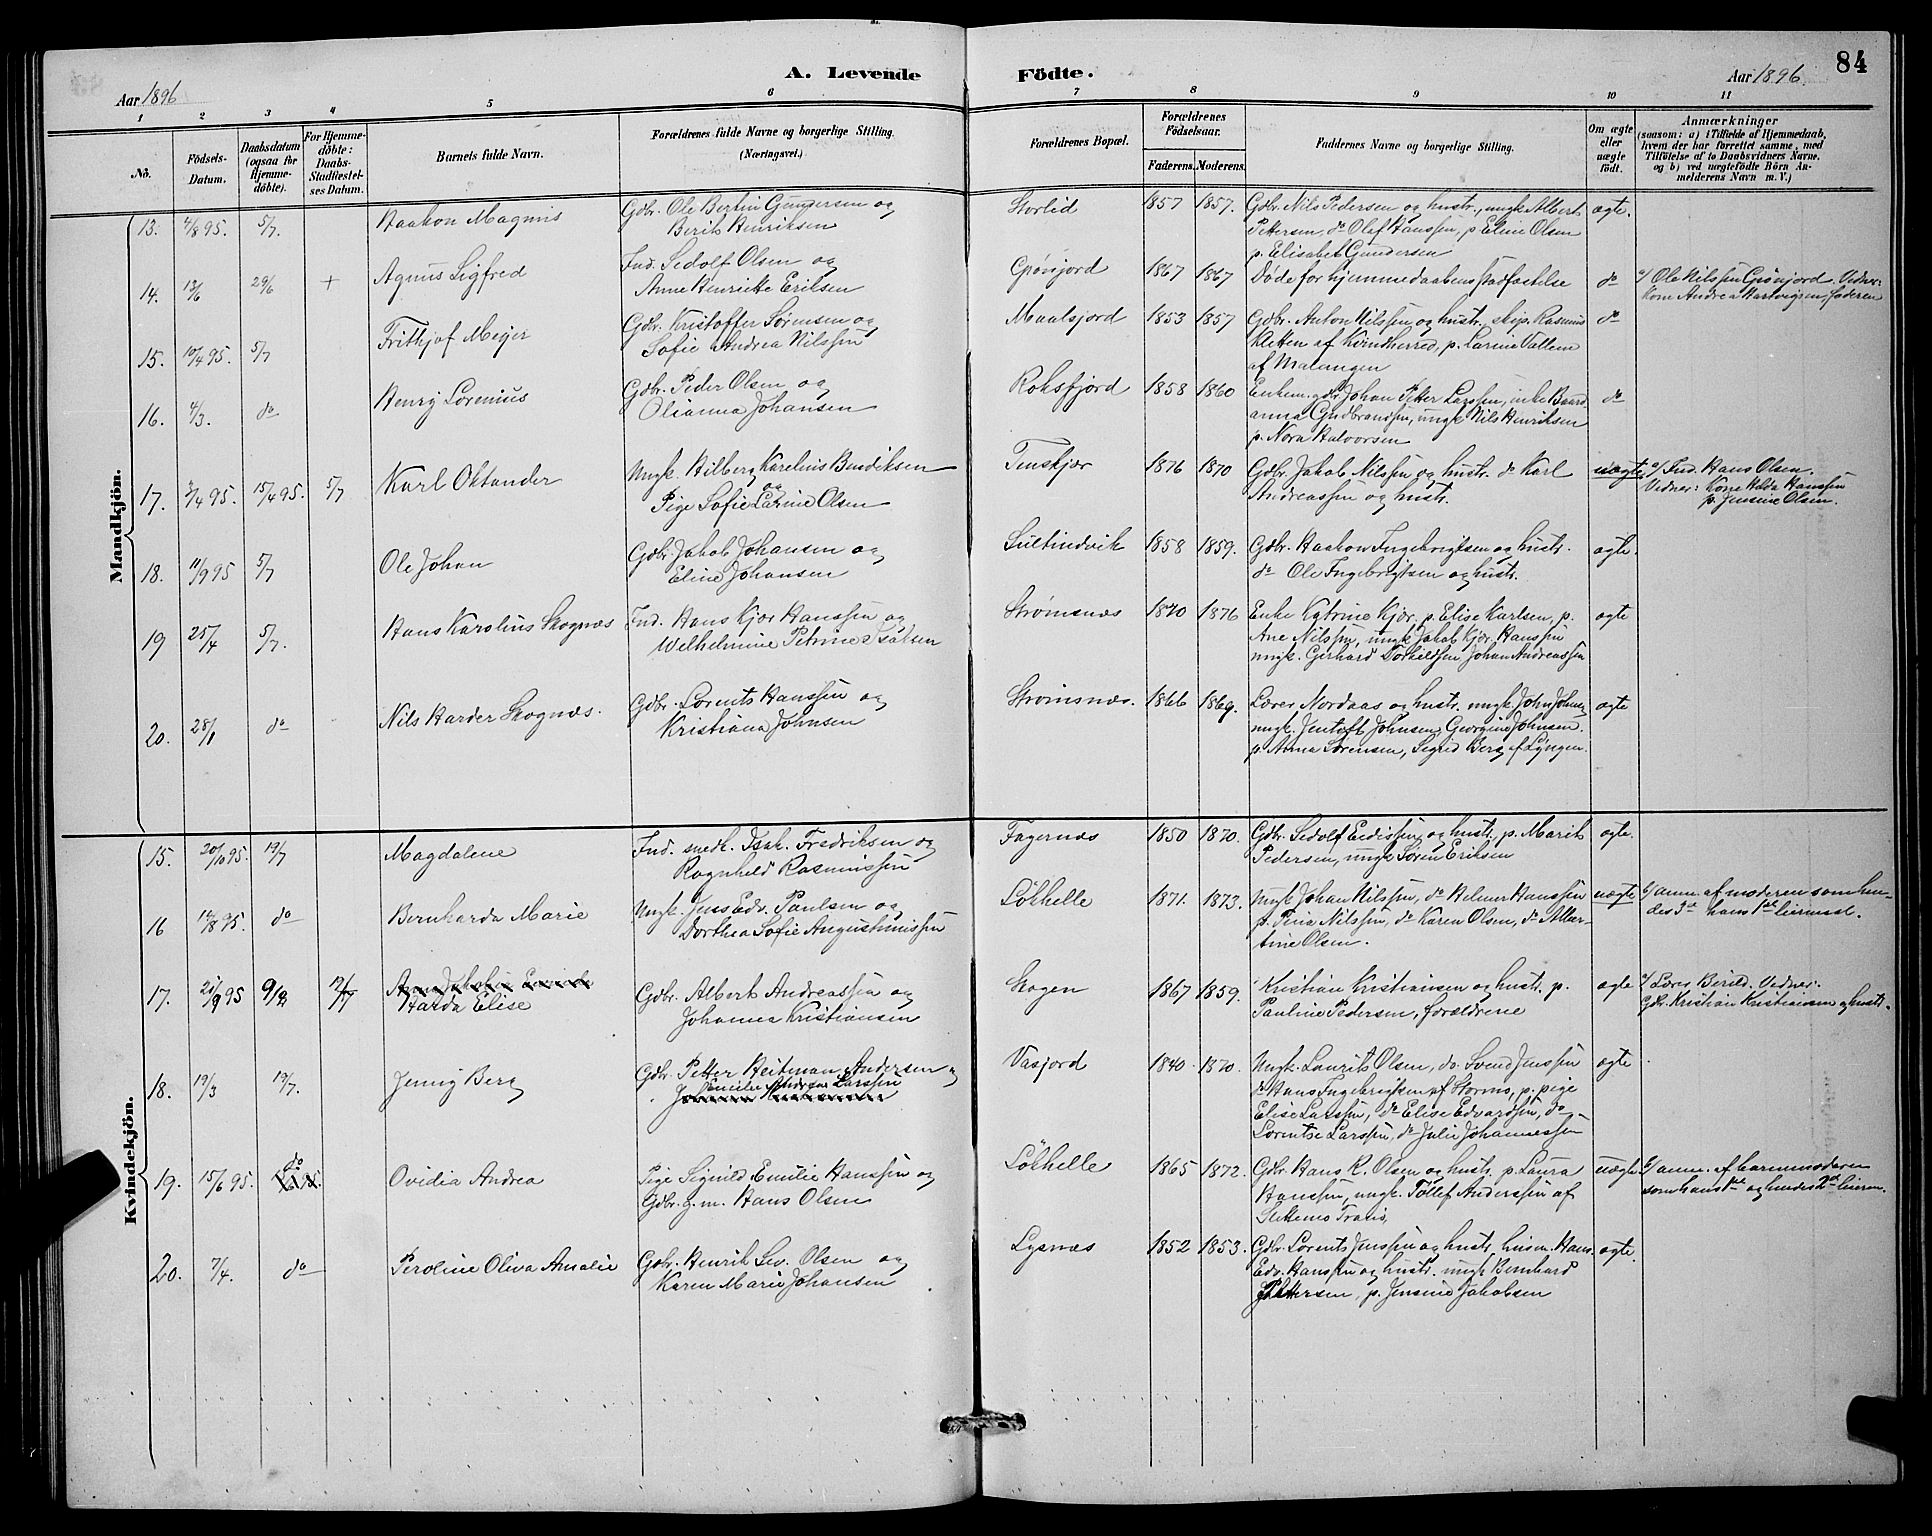 A. Levende Födte.
84
Aar 1896
Aar 1896.
1 2 3 4 5 6 7 8 9 10 11
No.
Födsels-Datum.
Daabsdatum (ogsaa for Hjemmedöbte).
For Hjemmedöbte: Daabs-Stadfæstelses Datum.
Barnets fulde Navn.
Forældrenes fulde Navne og borgerlige Stilling.
(Næringsvei.)
Forældrenes Bopæl.
Forældrenes Födselsaar.
Faderens. Moderens.
Faddernes Navne og borgerlige Stilling.
Om ægte eller uægte födt.
Anmærkninger
(saasom: a) i Tilfælde af Hjemmedaab,
hvem der har forrettet samme, med
Tilföielse af to Daabsvidners Navne,
og b) ved uægtefödte Börn Anmelderens Navn m. V.)
Mandkjön.
13. 4/8 95. 5/7. Haakon Magnus
Gdbr. Ole Bertin Gundersen og
Berit Henriksen
Storlid 1857 1857.
Gdbr. Nils Pedersen og hustr., ungk. Albert
Pettersen, do Olaf Hanssen, p. Eline Olsen
p. Elisabet Gundersen
ægte.
14. 13/6 29/6 + Agnus Sigfred
Ind. Sedolf Olsen og
Anne Henriette Eriksen
Grønjord 1867 1867
Døde før hjemmedaabens stadfæstelse
do
a/ Ole Nilssen Grønjord. Vidner:
Kone Andrea Hartvigsen, faderen
15. 10/4 95. 5/7 Frithjof Meyer
Gdbr. Kristoffer Sørensen og
Sofie Andrea Nilssen
Maalsjord 1853 1857
Gdbr. Anton Nilssen og hustr. skip. Rasmus
Kletten af Kvindherred, p. Larine Vallem
af Malangen
do
16. 4/3. do Henry Lorenius
Gdbr. Peder Olsen og
Olianna Johansen
Roksfjord 1858 1860
Enkem. gdr. Johan Petter Larssen, enke
anna Gudbrandsen, ungk. Nils Henriksen
p. Nora Halvorsen
do
17. 3/4 95. 15/4 95. 5/7 Karl Oktander
Ungk. Hilberg Karelius Bendiksen
og
Pige Sofie Larine Olsen
Tenskjær 1876 1870
Gdbr. Jakob Nilssen og hustr. do Karl
Andreassen og hustr.
uægte
a/ Ind. Hans Olsen.
Vidner: Kone Hilda Hanssen
p. Jensine Olsen.
18. 11/9 95 5/7 Ole Johan
Gdbr. Jakob Johansen og
Eline Johansen
Sultindvik 1858 1859.
Gdbr. Haakon Ingebrigtsen og hustr.
do Ole Ingebrigtsen og hustr.
ægte.
19 25/4 5/7. Hans Karolius Skognæs
Ind. Hans Kjær Hanssen og
Wilhelmine Petrine Isaksen
Strømsnæs 1870 1876
Enke Katrine Kjær, p. Elise Karlsen, p.
Ane Nilssen, ungk. Jakob Kjær Hanssen
ungk. Gerhard Torkildsen Johan Andreassen
ægte
20. 28/1 do Nils Harder Skognæs.
Gdbr. Lorents Hanssen og
Kristiana Johnsen
Strømsnæs. 1866 1869.
Lærer Nordaas og hustr. ungk. John Johns.
ungk. Jentoft Johnsen, Georgine Johnsen.
p. Anna Sørensen, Sigrid Berg af Lyngen.
ægte
Kvindekjön.
15. 20/10 95. 19/7 Magdalene
Ind. snedk. Isak Fredriksen og
Ragnhild Rasmussen
Fagernæs 1850 1870.
Gdbr. Sedolf Eedissen og hustr. p. Marit
Pedersen, ungk. Søren Eriksen
ægte.
16 19/8 95. do Bernharda Marie
Ungk. Jens Edv. Paulsen og
Dorthea Sofie Augustinussen
Løkhelle 1871. 1873.
Ungk. Johan Nilssen, do Helmer Hanssen
p. Pina Nilssen, do Karen Olsen, do Martine Olsen.
uægte
b/ anm. af moderen som hendes 3die hans 1ste leiermaal.
17. 21/9 95 9/8 19/7
Harda Elise
Gdbr. Albert Andreassen og
Johanna Kristiansen
Skogen 1867 1859.
Kristian Kristiansen og hustr. p.
Pauline Pedersen, forældrene
ægte
a/ Lærer Berild. Vidner:
Gdbr. Kristian Kristiansen og hustr.
18. 19/3 19/7. Jenny Berg
Gdbr. Petter Heitman Andersen og
Emilie Andrea Larssen
Vasjord 1840. 1870.
Ungk. Laurits Olsen, do. Svend Jenssen
do Hans Ingebrigtsen af Stormo, p. pige
Elise Larssen, do Elise Edvardsen, do
Lorentse Larssen, do Julie Johannessen
ægte
19. 15/6 95. do Ovidia Andrea
Pige Signild Emilie Hanssen og
Gdbr. g.m. Hans Olsen
Løkhelle 1865 1872.
Gdbr. Hans R. Olsen og hustr. p. Laura
Hanssen, ungk. Tollef Anderssen af
Slettemo
uægte.
b/ anm. af barnemoderen
som hans 1ste og hendes 2det leierm.
20. 7/4. do Peroline Oliva Amalie
Gdbr. Henrik Sev. Olsen og
Karen Marie Johansen
Lysnæs 1852 1853.
Gdbr. Lorents Jenssen og hustr. husm. Hans
Edv. Hanssen og hustr. ungk. Bernhard
Pettersen, p. Jensine Jakobsen
ægte.